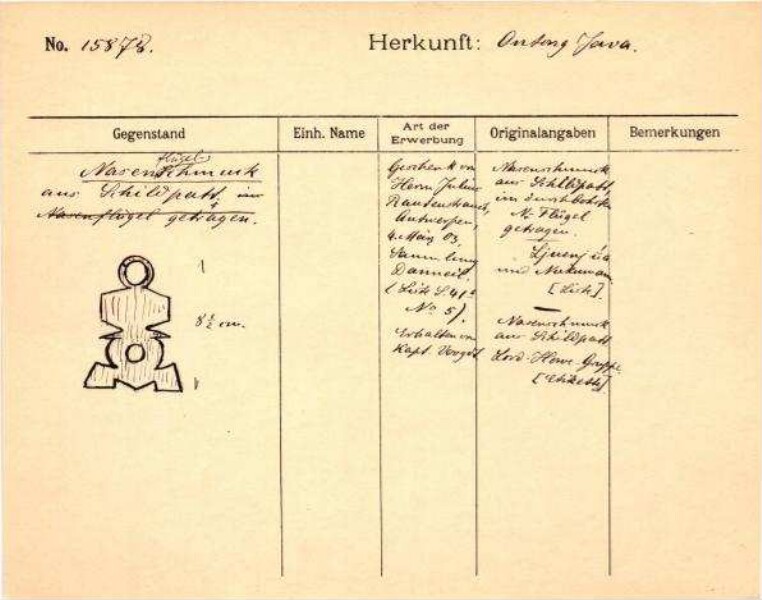 No. 15878.
Herkunft: Ontong Java.
Gegenstand
Einh. Name
Art der
Erwerbung
Originalangaben
Bemerkungen
flügel-
Nasenschmuck
aus Schildpatt, im
Nasenflügel getragen.
8 1/2 cm.
Geschenk von
Herrn Julius
Rautenstrauch,
Antwerpen,
4. März 03.
Sammlung
Danneil.
(Liste S. 41
No 5).
Erhalten von
Kapt. Voogdt
Nasenschmuck
aus Schildpatt,
im durchbohrten
N. Flügel
getragen.
und
[Liste].
Nasenschmuck
aus Schildpatt
Lord-Howe-Gruppe
[Etikette]